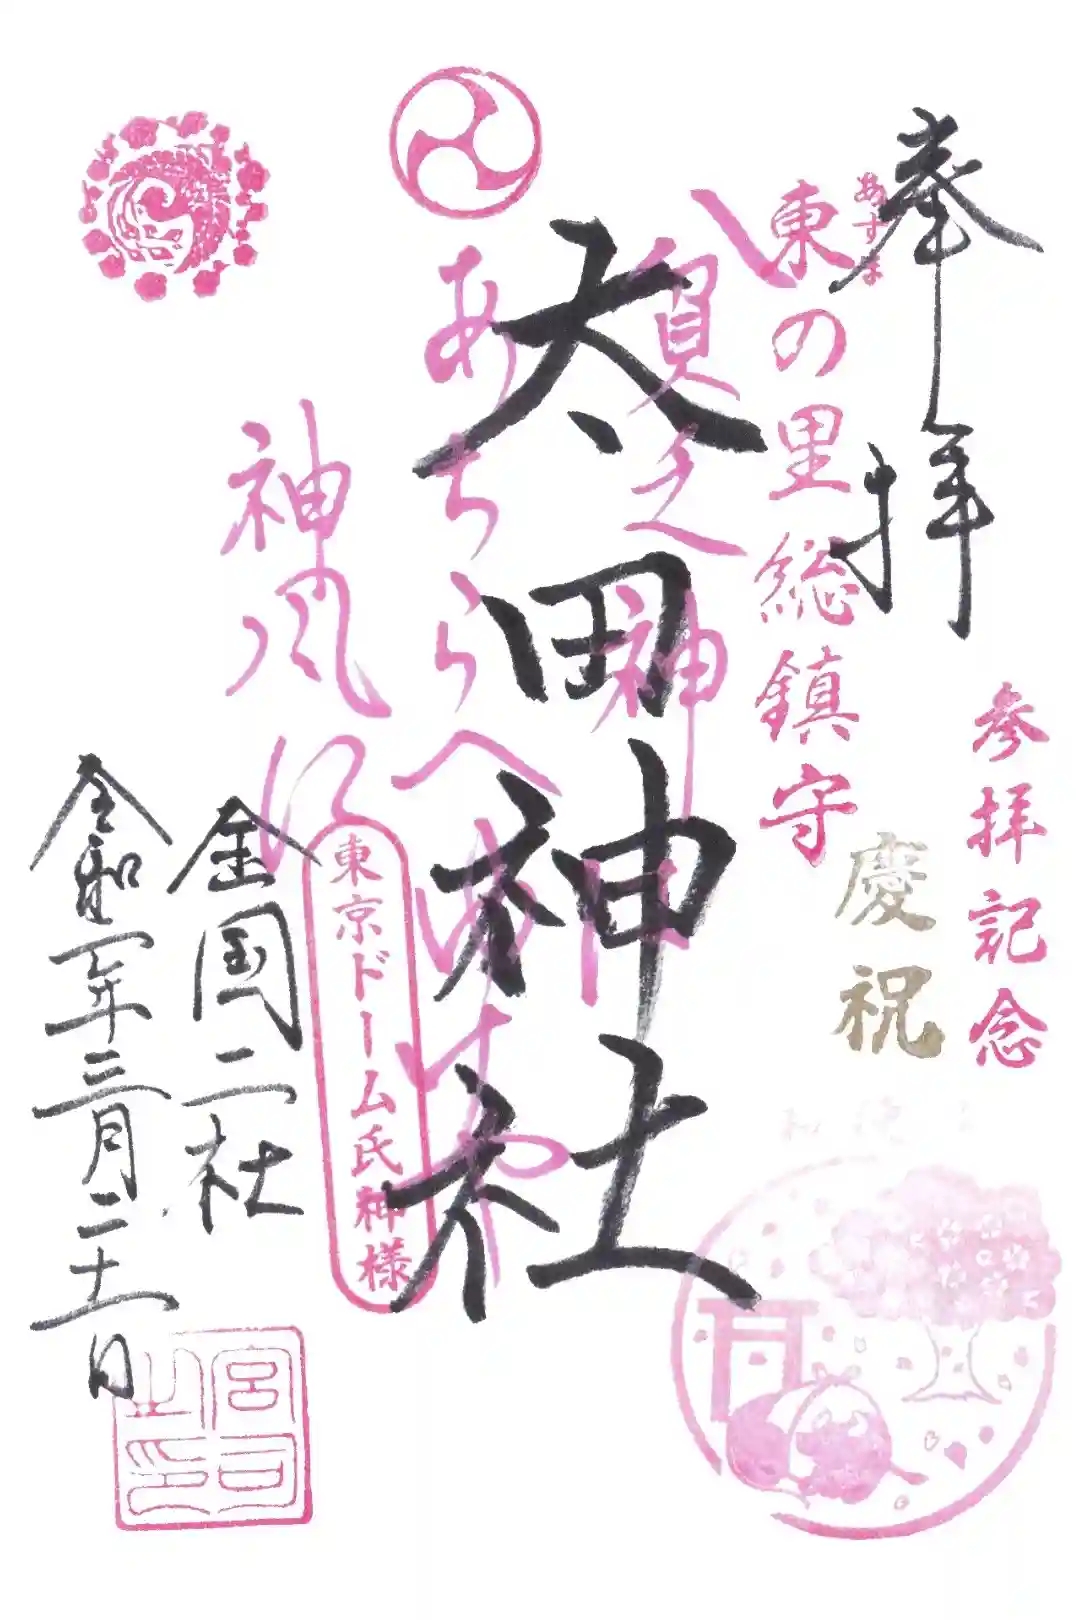 奉拝
東の里総鎮守
あずま
参拝記念
慶祝
太田神社
貧乏神は
あちらへ
神風に
東京ドーム氏神様
全国二社
令和二年三月二十一日
宮司之印